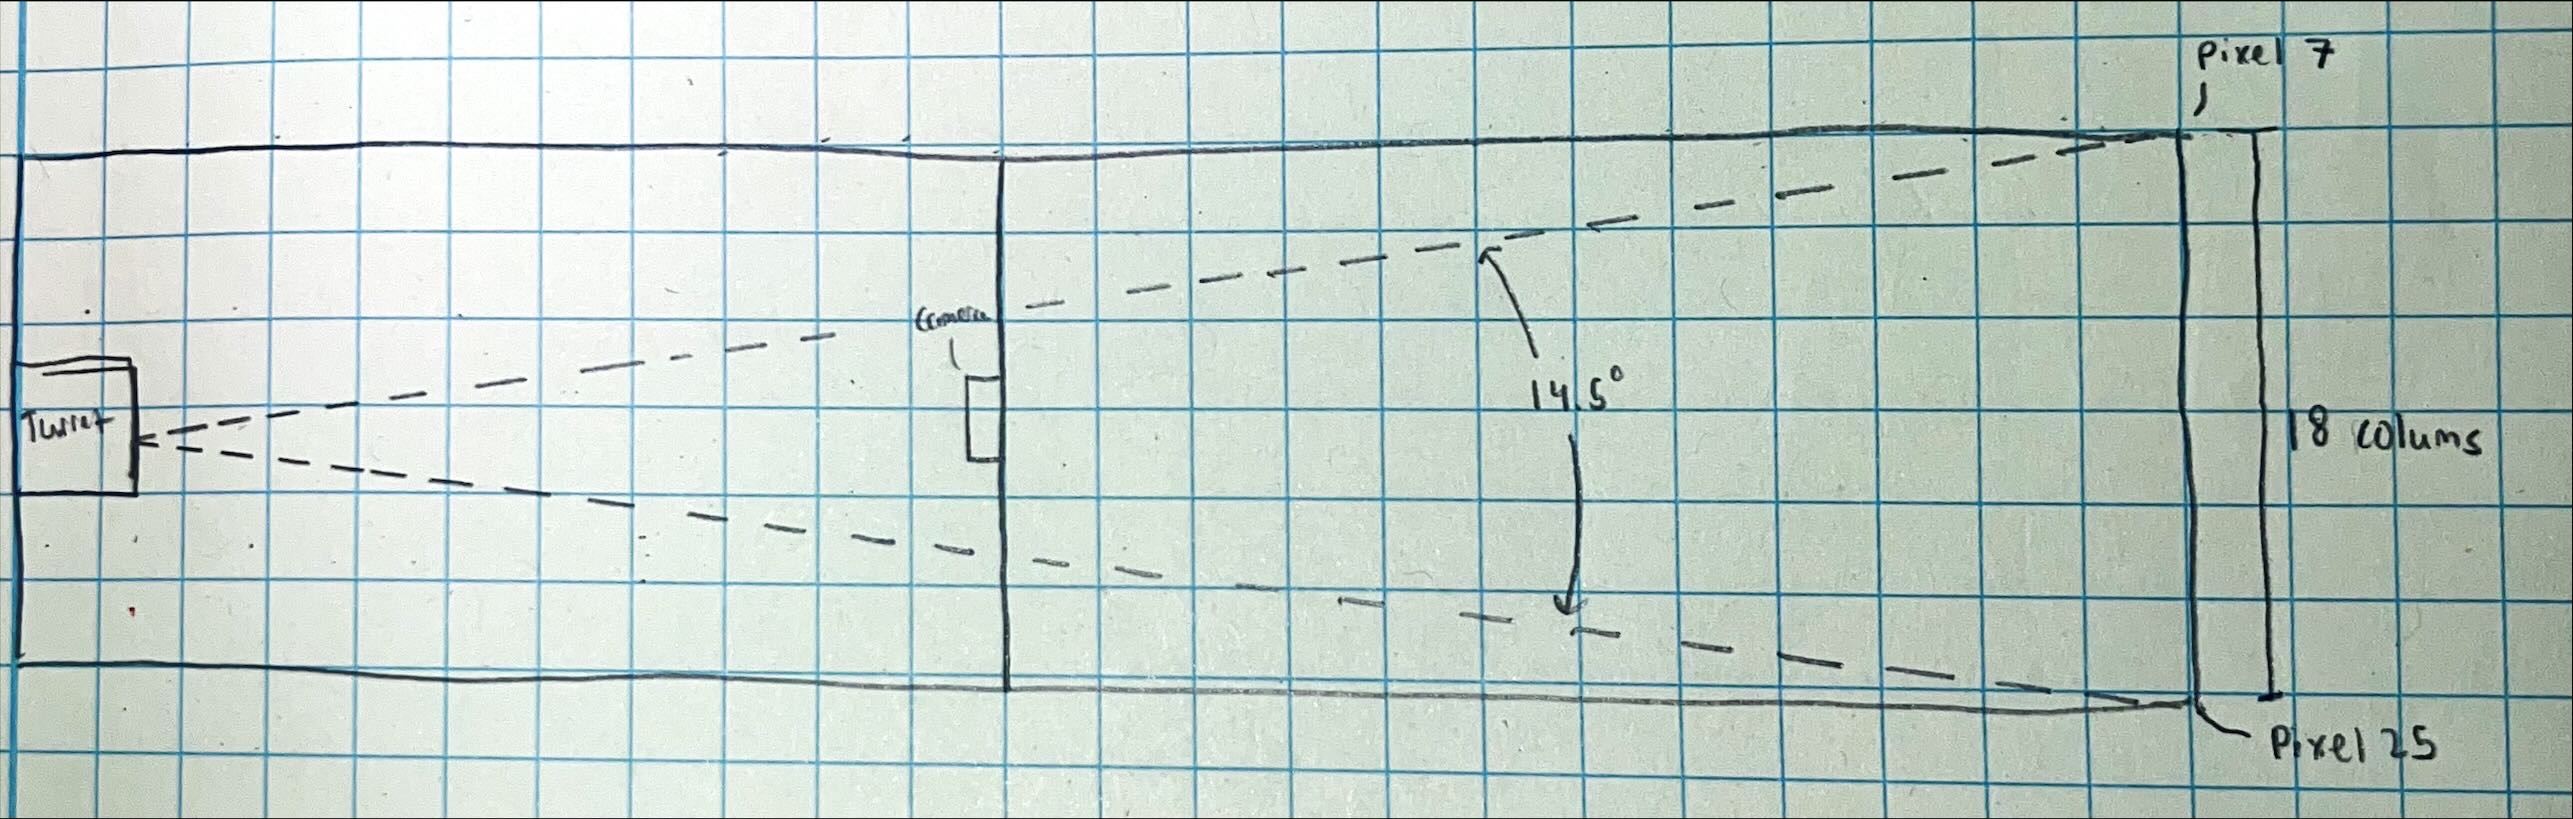 Pixel 7
Camera
Turret
14.5°
18 colums
Pixel 25